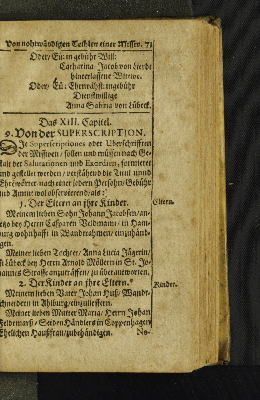 Von nohtwändigen Stükken einer Missiv. 73
Oder/ Eü: in gebühr Will:
Catharina Jacob von Lierde
hinterlassene Wittwe.
Oder/ Eü: Ehrwähst: ingebühr
Dienstwillige
Anna Sabina von Lübeck.
Das XIII. Capitel.
9. Von der SUPERSCRIPTION.
Die Superscriptiones oder Uberschrifften
der Missiven/ sollen und müssen nach Ge-
stalt der Salutationen und Exordien, formieret
und gestellet werden/ verstähend die Titul unnd
Ehrwörter nach einer jedern Persohn/Gebühr
und Ammt wol observierend/ als:
1. Der Eltern an jhre Kinder.
Eltern.
Meinem lieben Sohn Johann Jacobsen/ an-
itzo bey Herrn Casparen Veldmann/ in Ham-
burg wohnhafft in Wandrahmen/ einzuhändi-
gen.
Meiner lieben Tochter/ Anna Lucia Jägerin/
itzt Lübeck bey Herrn Arnold Möllern in St. Jo-
hannes Straße anzuträffen/ zu überantworten.
2. Der Kinder an jhre Eltern.
Kinder.
Meinem lieben Vater Johan Huß/ Wandt-
schneidern in Ahlburg/einzulieffern.
Meiner lieben Mutter Maria/ Herrn Johan
Feldemarß/ Seiden Händlers in Coppenhagen
Ehelichen Haußfrau/zubehändigen.